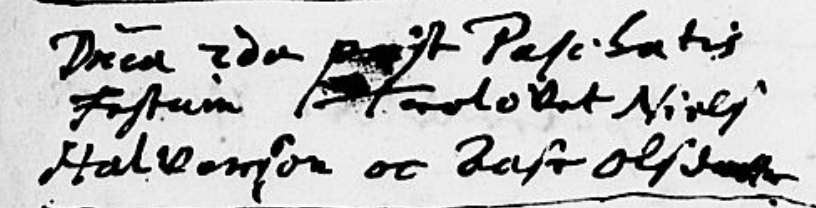 Dnca 2da post Paschatis
Festum Trolovet Niels
Halvorsøn oc Olsdatter